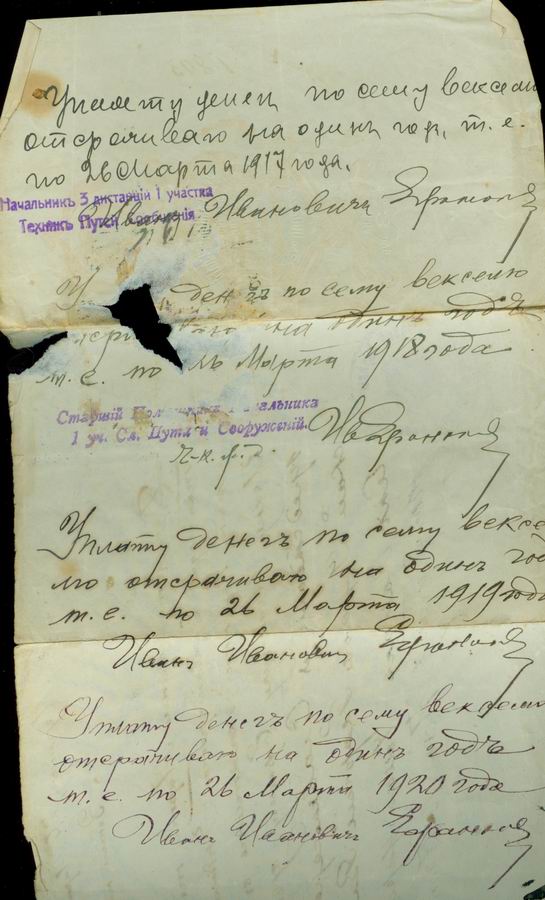 Уплату денег по сему вексел
отсрочиваю на один год, т.е.
по 26 Марта 1917 года.
Начальникъ 3 дистанціи 1 участка
Техникъ Путей Сообщенія
Ивановичъ
У денегъ по сему векселю
на одинъ годъ
т.е. по 26 Марта 1918 года
Старшій Помощникъ Начальника
1 уч. Сл. Пути и Сооруженій.
Уплату денегъ по сему вексе
лю отсрачиваю на одинъ год
т.е. по 26 Марта 1919 года
Иванъ Ивановичъ
Уплату денегъ по сему вексел
отсрачиваю на одинъ годъ
т.е. по 26 Марта 1920 года
Иванъ Ивановичъ